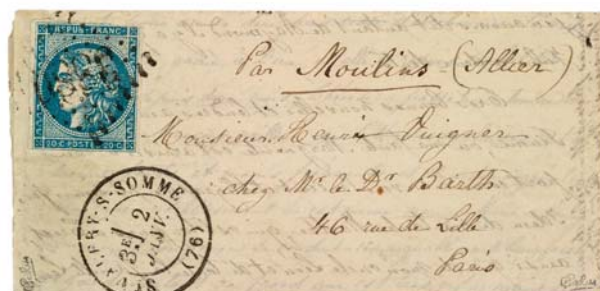 REPUB. FRANC.
20.C. POSTES 20.C.
Par Moulins (Allier)
Monsieur Henri Vuigner
chez Mr. le Dr. Barth
46 rue de Lille
Paris
ST VALERY-S-SOMME (76)
3E
2
JANV.